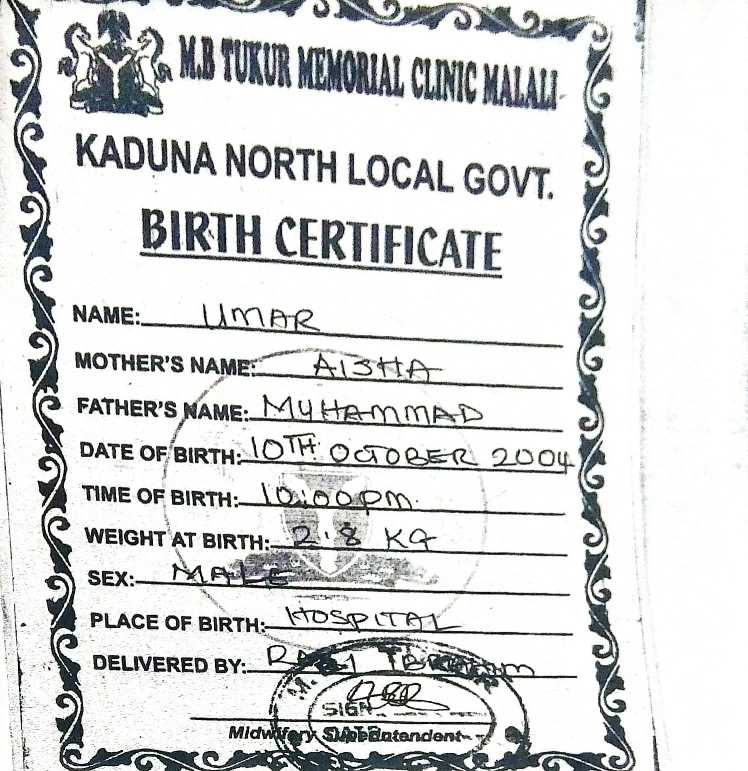 M.B TUKUR MEMORIAL CLINIC MALALI
KADUNA NORTH LOCAL GOVT.
BIRTH CERTIFICATE
NAME: UMAR
MOTHER'S NAME: AISHA
FATHER'S NAME: MUHAMMAD
DATE OF BIRTH: 10TH OCTOBER 2004
TIME OF BIRTH: 10:00pm
WEIGHT AT BIRTH: 2.8 KG
SEX: MALE
PLACE OF BIRTH: HOSPITAL
DELIVERED BY:
SIGN
Midwifery Superintendent
DATE